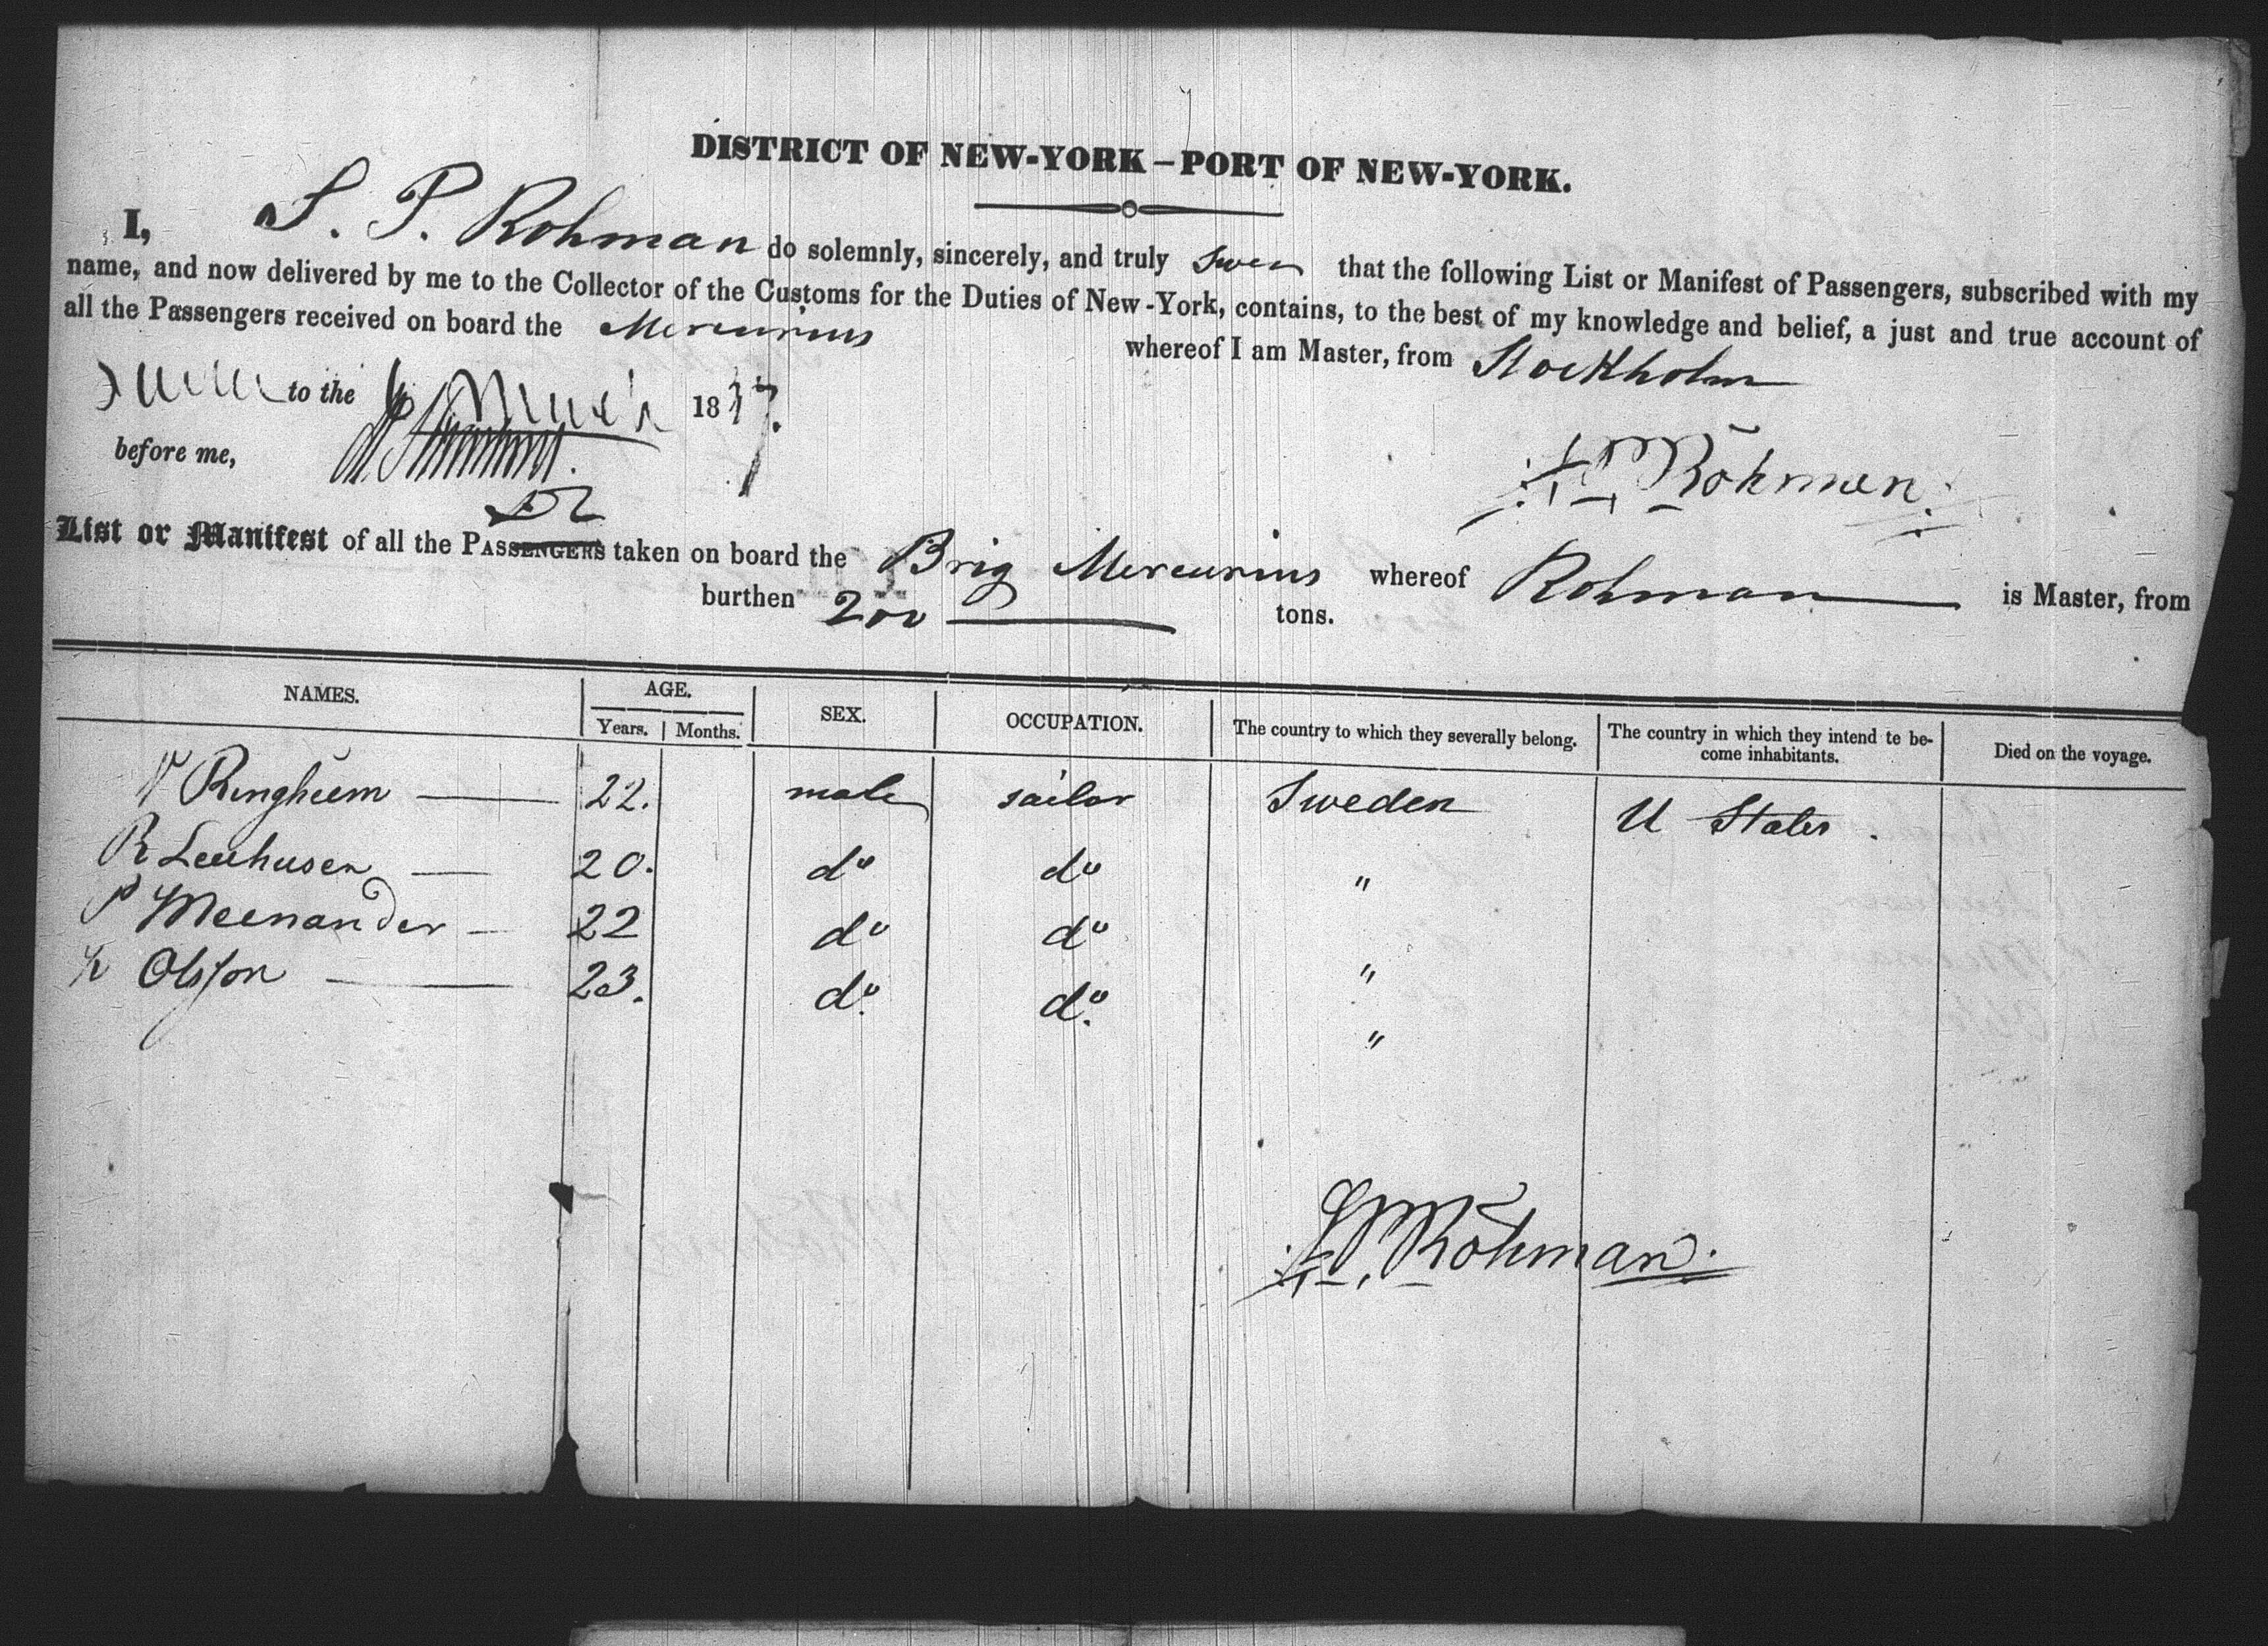 DISTRICT OF NEW-YORK – PORT OF NEW-YORK.
I, S. P. Rohman do solemnly, sincerely, and truly Swear that the following List or Manifest of Passengers, subscribed with my
name, and now delivered by me to the Collector of the Customs for the Duties of New-York, contains, to the best of my knowledge and belief, a just and true account of
all the Passengers received on board the Mercurius whereof I am Master, from Stockholm
to the 1837.
before me,
Röhman
List or Manifest of all the PASSENGERS taken on board the Brig Mercurius whereof Rohman is Master, from
burthen 200 tons.
NAMES. AGE. SEX. OCCUPATION. The country to which they severally belong. The country in which they intend to be-
come inhabitants. Died on the voyage.
Years. Months.
Ringheim 22. male sailor Sweden U States.
R Leuhusen 20. do do "
P Meenander 22 do do "
Olsson 23. do. do. "
Röhman.